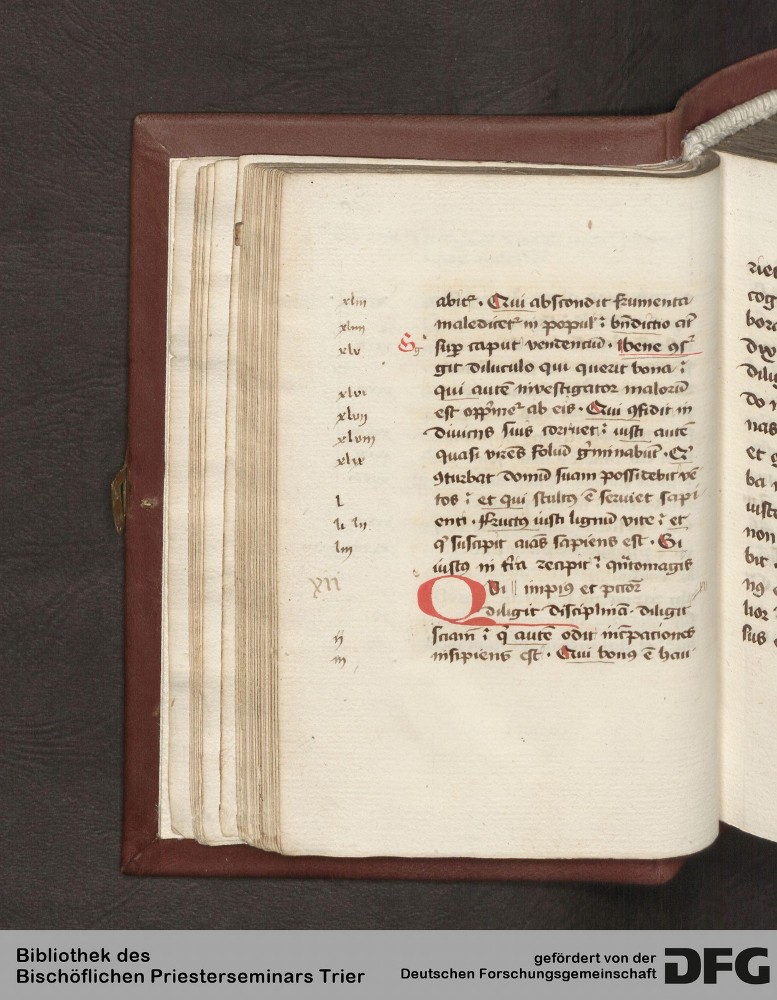 xliii abitr. Qui abscondit frumenta
xliiii maledicetr in popul': bndictio at
xlv Sg sup caput vendenciu. Bene 9sr
git diluculo qui querit bona:
xlvi qui aute investigator maloru
xlvii est opprimetr ab eis. Qui 9fidit in
xlviii diviciis suis corruet: iusti aute
xlix quasi vires foliu gminabut. Qr
9turbat domu suam possidebit ve
l tos: et qui stultus e serviet sapi
li lii enti. Fructus iusti lignu vite: et
liii q suscipit aias sapiens est. Si
iustus in tra recipit: qntomagis
XII Qui impius et pctor
diligit disciplina. diligit
ii sciam: q aute odit increpationes
iii insipiens est. Qui bonus e hau
riet
cog
dix
dilig
do
nas
et
ba
iuste
non
bit
sus
Bibliothek des
Bischöflichen Priesterseminars Trier
gefördert von der
Deutschen Forschungsgemeinschaft
DFG